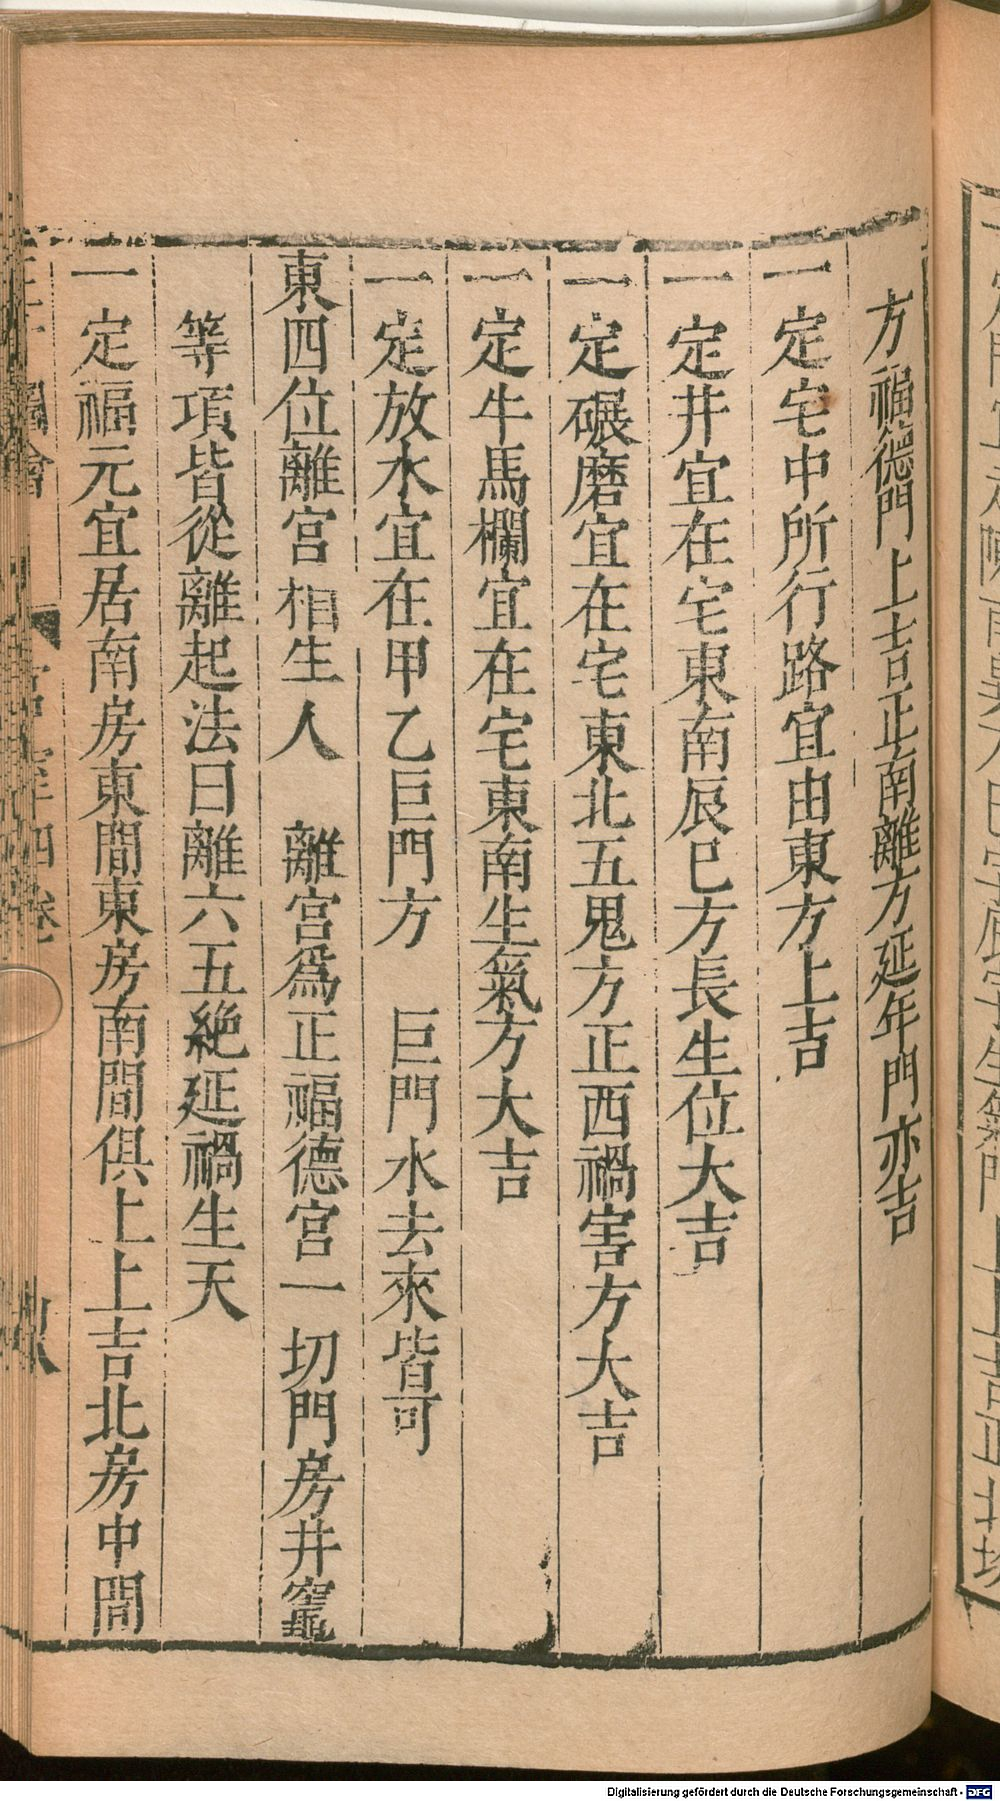 方福德門上吉正南離方延年門亦吉
一定宅中所行路宜由東方上吉
一定井宜在宅東南辰巳方長生位大吉
一定碾磨宜在宅東北五鬼方正西禍害方大吉
一定牛馬欄宜在宅東南生氣方大吉
一定放水宜在甲乙巨門方　巨門水去來皆可
東四位離宮相生人　離宮爲正福德宮一切門房井竈
等項皆從離起法曰離六五絕延禍生天
一定福元宜居南房東間東房南間俱上上吉北房中間
宮室四卷
Digitalisierung gefördert durch die Deutsche Forschungsgemeinschaft - DFG